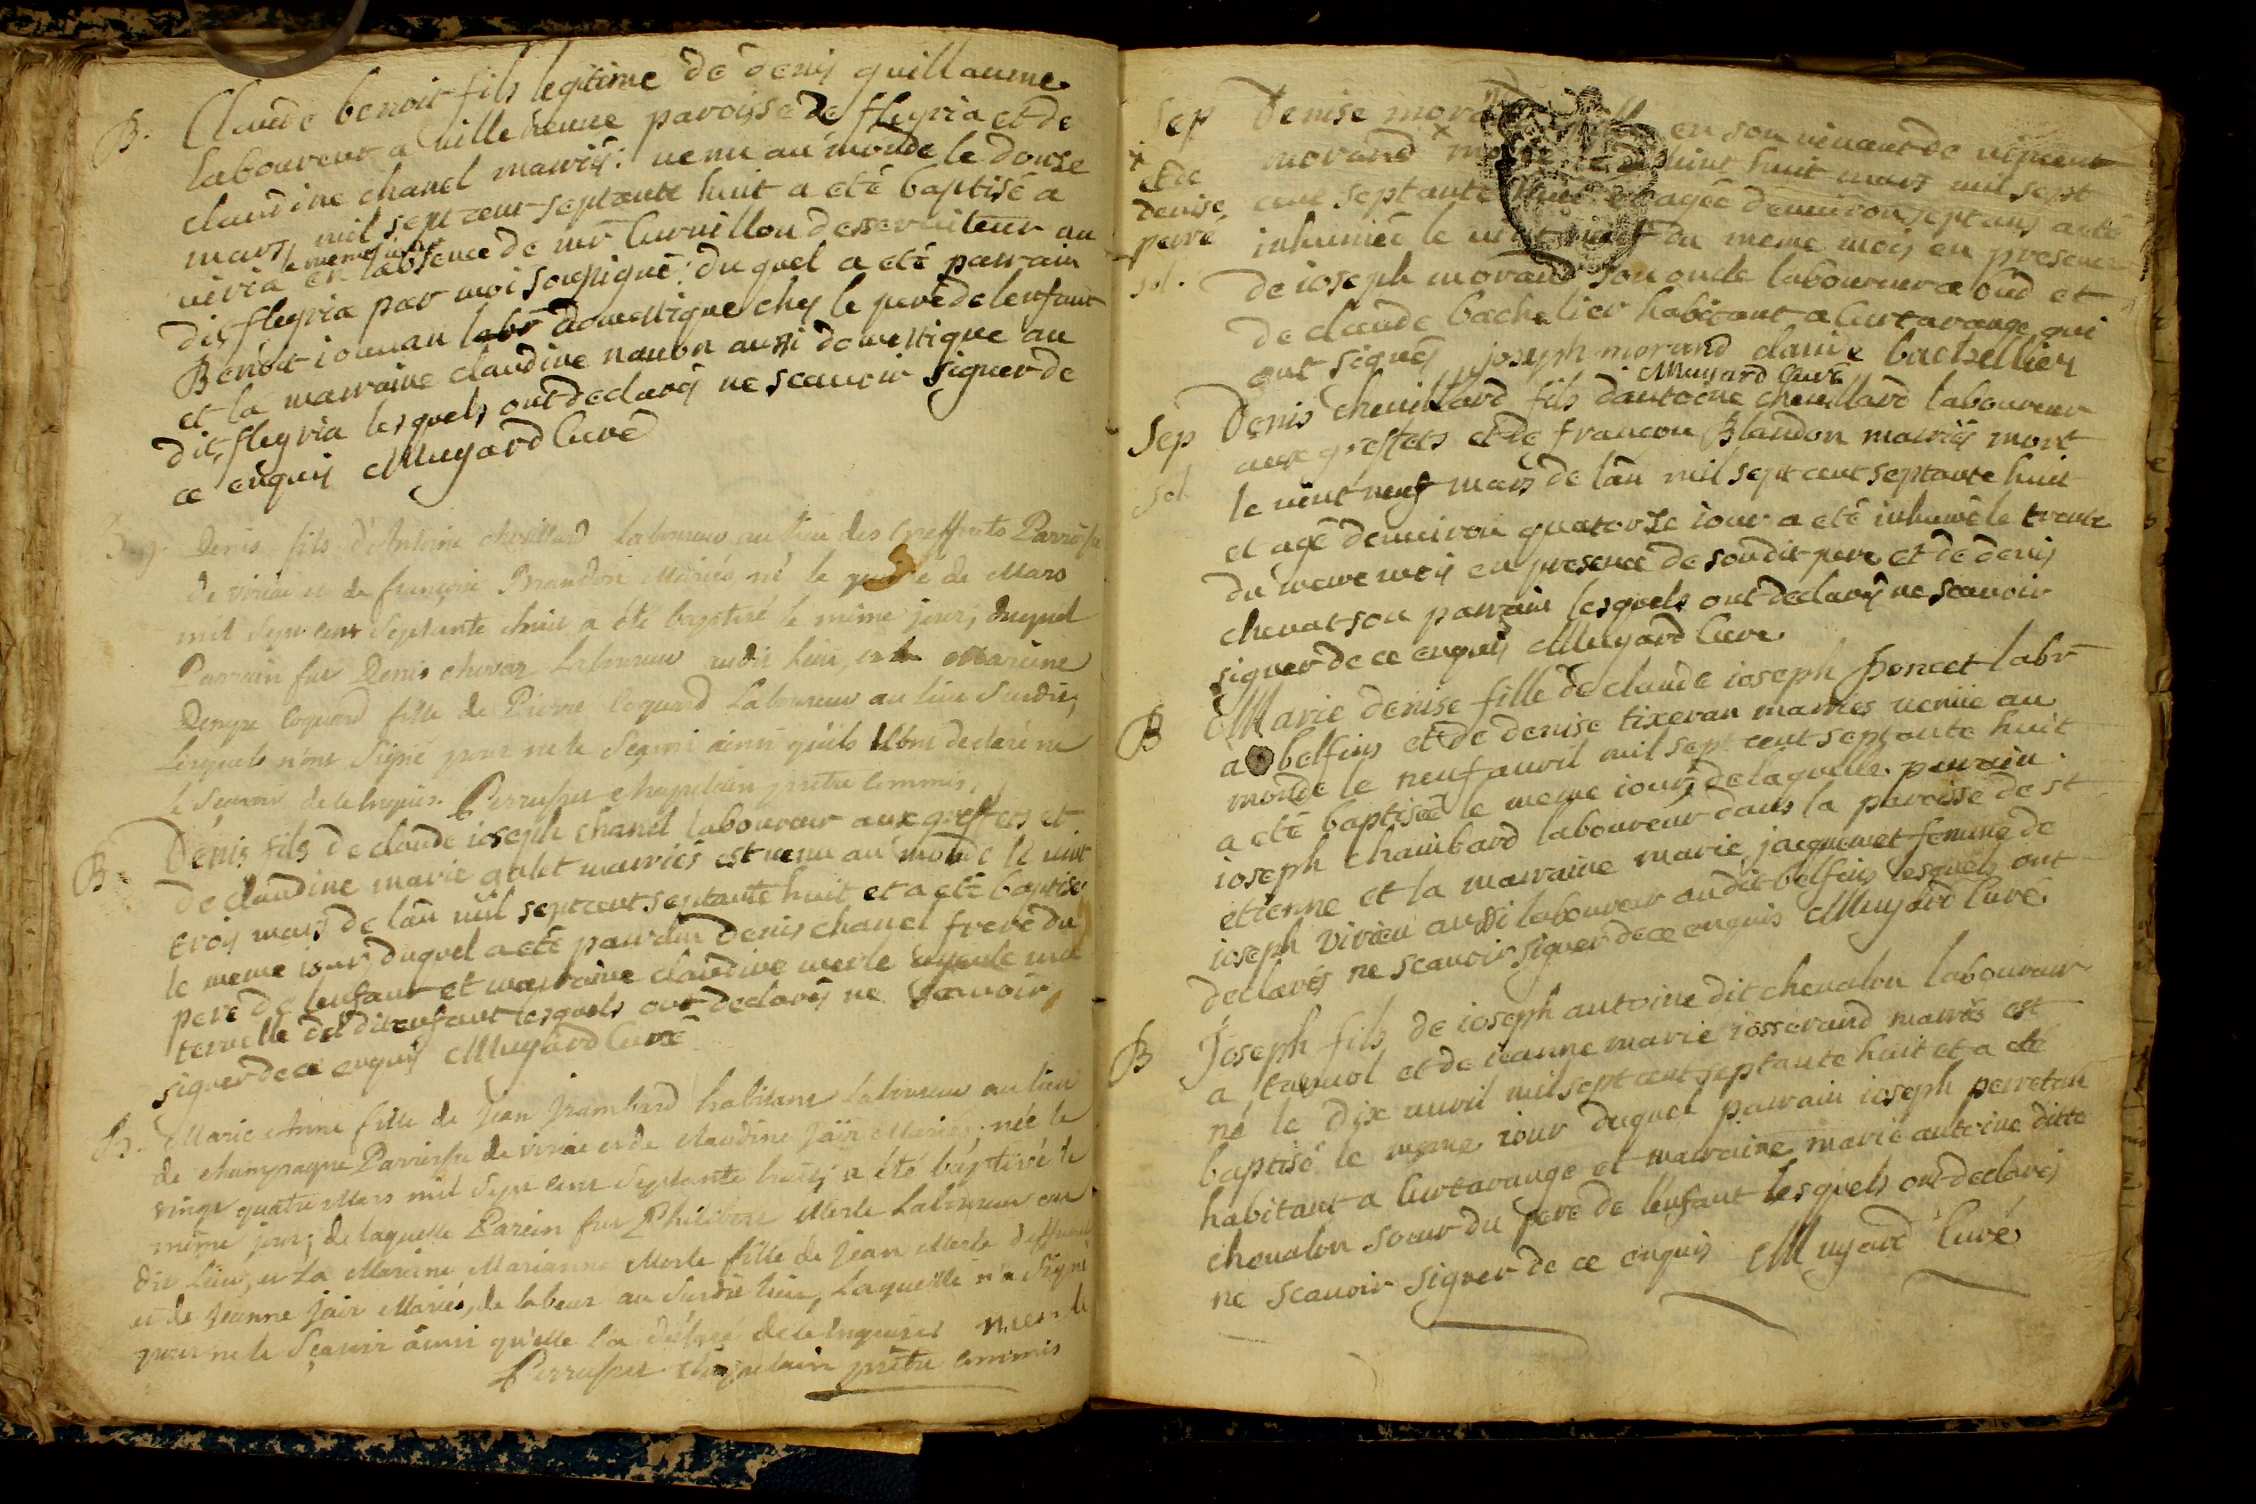 B. Claude benoit fils legitime de denis guillaume
laboureur a villeneuve paroisse de fleyria et de
claudine chanel mariés: venu au monde le douse
mars mil sept cent septante huit a été baptisé a
le meme jour
viria en l'absence de mr Curvillon desserviteur au
dit fleyria par moi soussigné: duquel a été parrain
Benoit iouvan labr domestique chez le pere de lenfant
et la marraine claudine nauon aussi domestique au
dit fleyria lesquels ont declarés ne scauoir signer de
ce enquis Mugard Curé
B. Denis fils d'Antoine chevillard Laboureur au lieu des Greffets Parroisse
de viriai et de françoise Brandon Mariés né le de Mars
mil sept cent Septante huit a été baptisé le même jour, duquel
Parrain fut Denis chevat Laboureur audit Lieu, et la Maraine
Denyse Coquard fille de Pierre Coquard Laboureur au lieu Susdit,
Lesquels n'ont Signé pour ne le Sçavoir ainsi qu'ils l'ont declaré ne
le Sçavoir de ce Enquis. chapelain prêtre commis,
B. Denis fils de claude ioseph chanel laboureur aux greffets et
de claudine marie galet mariés est venu au monde le vint
trois mars de lan mil sept cent septante huit et a été baptisé
le meme iour, duquel a été parrain Denis chanel frere du
pere de lenfant et marraine claudine merle ayeule ma
ternelle du dit enfant lesquels ont declarés ne scavoir
signer de ce enquis Mugard Curé
B. Marie Anne fille de Jean habitant Laboureur au lieu
de champagne Parroisse de viriai et de claudine Jair Mariés, née le
vingt quatre Mars mil Sept cent Septante huit, a été baptisé le
même jour; de laquelle Parain fut Philibert Merle Laboureur au
dit Lieu, et La Maraine Marianne Merle fille de Jean Merle deffunt
et de Jeanne Jair Mariés, de labeur au Susdit lieu, Laquelle n'a Signé
pour ne le Sçavoir ainsi qu'elle l'a déclaré de ce Enquise merle
chapelain prêtre commis
Sep Denise en son vivant de vincent
x morand x vint huit mars mil sept
et de denise perré cent septante huit et agée denviron sept ans a été
inhumée le vint neuf du meme mois en presence
sol. de ioseph morand son oncle laboureur a oud et
de claude bachelier habitant a Curtarange qui
ont signés joseph morand claude bachellier
Mugard Curé
Sep Denis chevillard fils dantoine chevillard laboureur
aux greffets et de francon Blandon mariés mort
sol. le vint neuf mars de lan mil sept cent septante huit
et agé denviron quatorze iour a été inhumé le trente
du meme mois en presence de son dit pere et de denis
chevat son parrain lesquels ont declarés ne scavoir
signer de ce enquis Mugard Curé
B Marie denise fille de claude ioseph poncet labr
a belfins et de denise tixeran mariés venüe au
monde le neuf auvril mil sept cent septante huit
a été baptisée le meme iour, de laquelle parrain
ioseph chambard laboureur dans la paroisse de st
etienne et la marraine marie jacquemet femme de
ioseph vivieu aussi laboureur au dit belfins lesquels ont
declarés ne scavoir signer de ce enquis Mugard Curé
B Joseph fils de ioseph antoine dit chevalon laboureur
a et de ieanne marie iosserand mariés est
né le dix auvril mil sept cent septante huit et a été
baptisé le meme iour duquel parrain ioseph perretan
habitant a Curtarange et marraine marie antoine ditte
chevalon soeur du pere de lenfant lesquels ont declarés
ne scavoir signer de ce enquis Mugard Curé